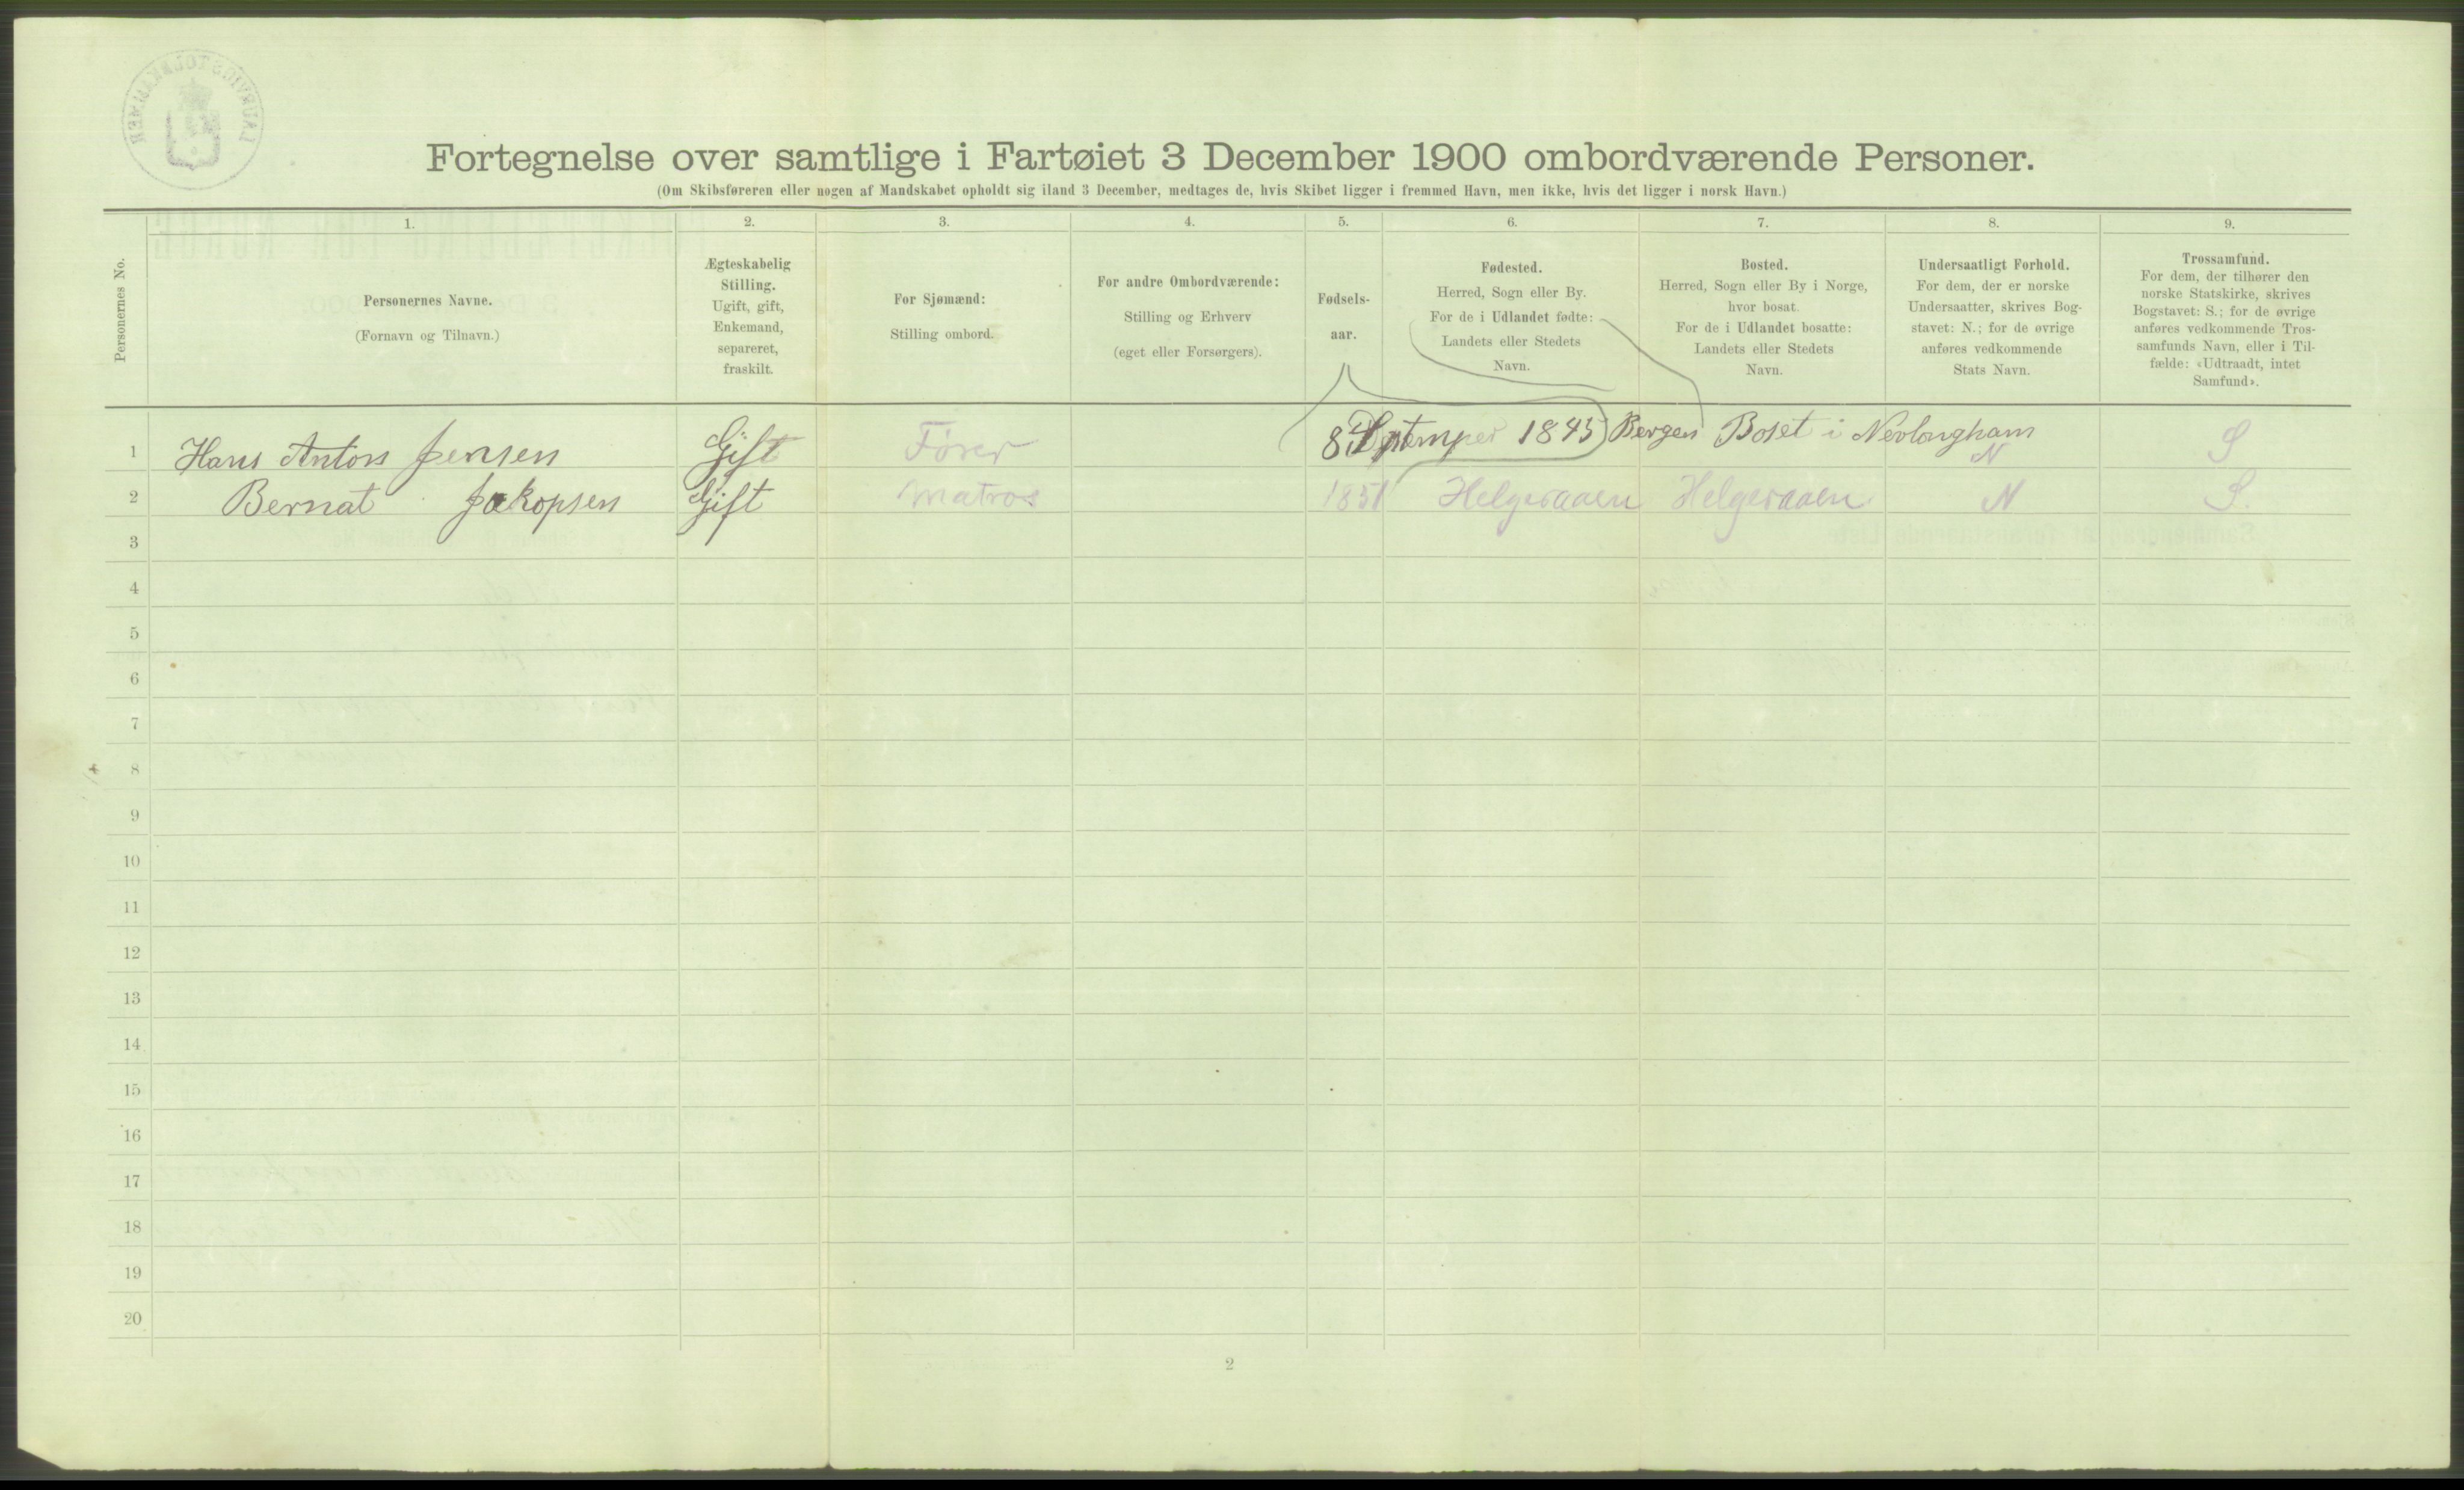 Fortegnelse over samtlige i Fartøiet 3 December 1900 ombordværende Personer.
(Om Skibsføreren eller nogen af Mandskabet opholdt sig iland 3 December, medtages de, hvis Skibet ligger i fremmed Havn, men ikke, hvis det ligger i norsk Havn.)
Personernes No.
1.
Personernes Navne.
(Fornavn og Tilnavn.)
2.
Ægteskabelig
Stilling.
Ugift, gift,
Enkemand,
separeret,
fraskilt.
3.
For Sjømænd:
Stilling ombord.
4.
For andre Ombordværende:
Stilling og Erhverv
(eget eller Forsørgers).
5.
Fødsels-
aar.
6.
Fødested.
Herred, Sogn eller By.
For de i Udlandet fødte:
Landets eller Stedets
Navn.
7.
Bosted.
Herred, Sogn eller By i Norge,
hvor bosat.
For de i Udlandet bosatte:
Landets eller Stedets
Navn.
8.
Undersaatligt Forhold.
For dem, der er norske
Undersaatter, skrives Bog-
stavet: N.; for de øvrige
anføres vedkommende
Stats Navn.
9.
Trossamfund.
For dem, der tilhører den
norske Statskirke, skrives
Bogstavet: S.; for de øvrige
anføres vedkommende Tros-
samfunds Navn, eller i Til-
fælde: «Udtraadt, intet
Samfund».
1 Hans Anton Jensen Gift Fører 8 Septemper 1845 Bergen Boset i Nevlongham N S
2 Bernat Jakopsen Gift Matros 1851 Helgeraaen Helgeraaen N S.
3
4
5
6
7
8
9
10
11
12
13
14
15
16
17
18
19
20
2